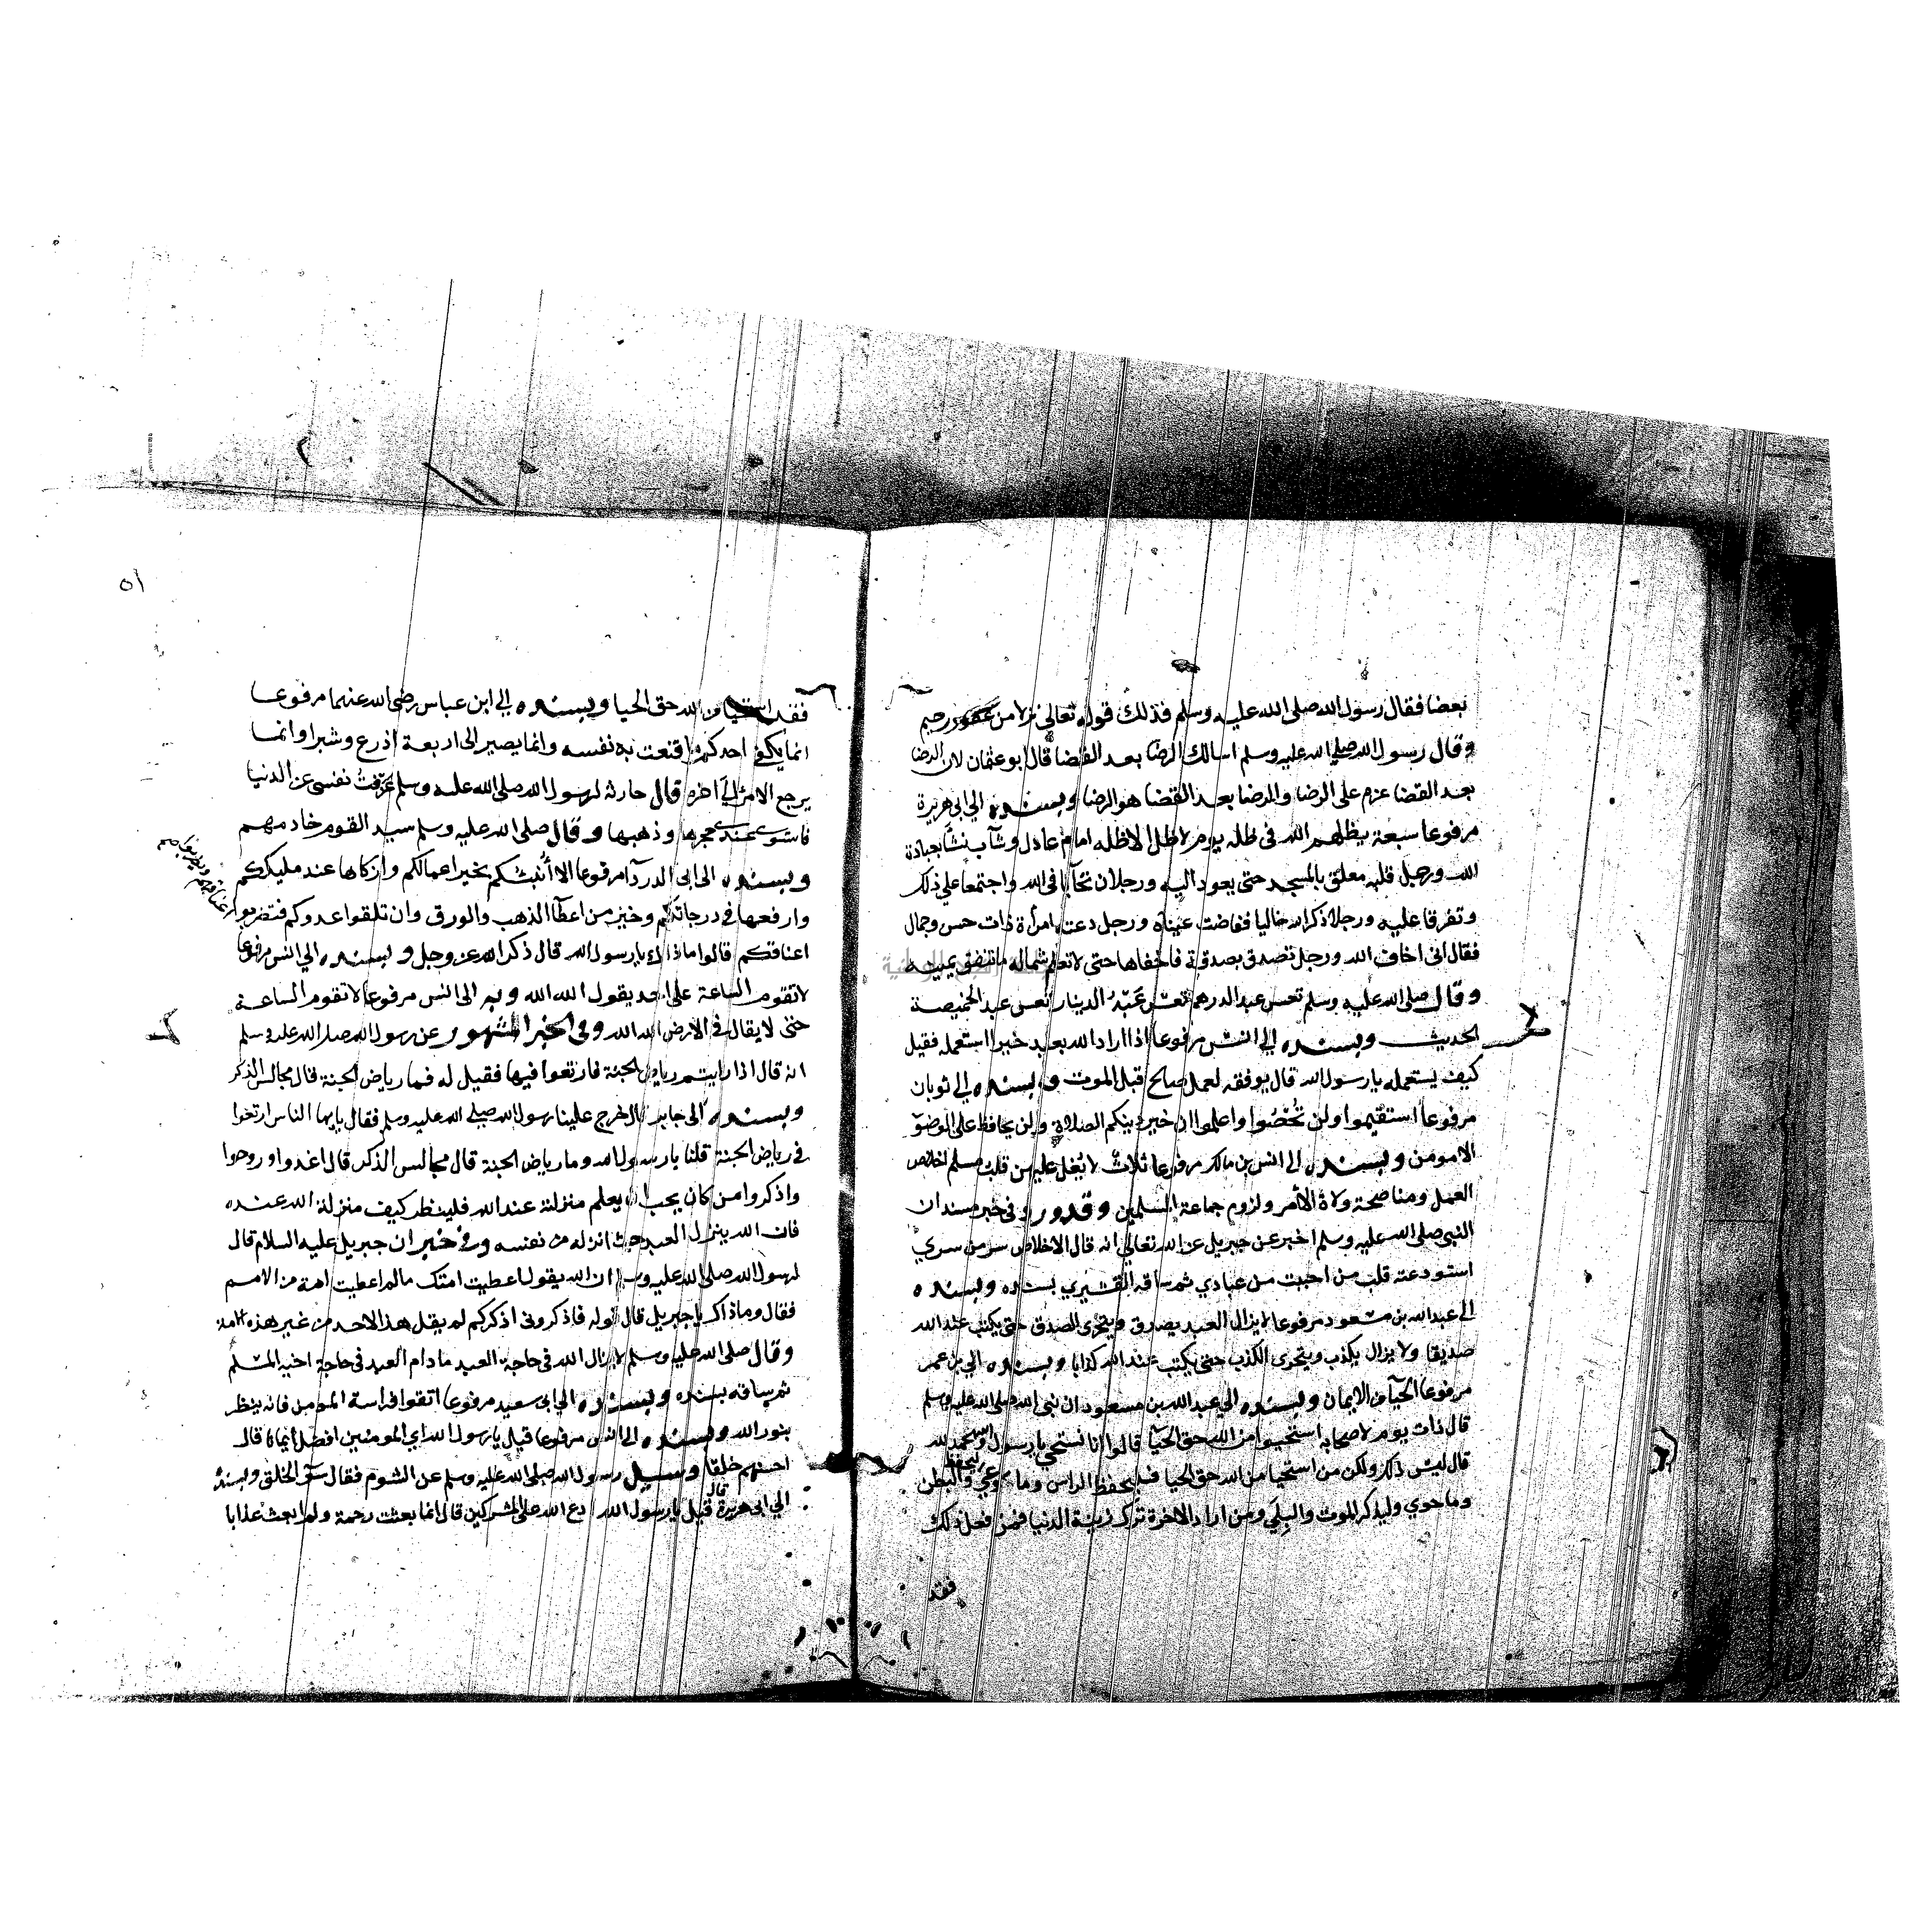 بعضا فقال رسول الله صلى الله عليه وسلم فذلك قوله تعالى نزلا من غفور رحيم
وقال رسول الله صلى الله عليه وسلم اسالك الرضا بعد القضا قال ابو عثمان لان الرضا
بعد القضا عزم على الرضا والرضا بعد القضا هو الرضا وبسنده الى ابى هريرة
مرفوعا سبعة يظلهم الله فى ظله يوم لا ظل الا ظله امام عادل وشآب نشأ بعبادة
الله ورجل قلبه معلق بالمسجد حتى يعود اليه ورجلان تحآبا فى الله واجتمعا على ذلك
وتفرقا عليه ورجلا ذكر الله خاليا ففاضت عيناه ورجل دعته امرأة ذات حسن وجمال
فقال انى اخاف الله ورجل تصدق بصدقة فاخفاها حتى لا تعلم شماله ما تنفق يمينه
وقال صلى الله عليه وسلم تعس عبد الدرهم تعس عبد الدينار تعس عبد الخميصة
الحديث وبسنده الى انس مرفوعا اذا اراد الله بعبد خيرا استعمله فقيل
كيف يستعمله يا رسول الله قال يوفقه لعمل صالح قبل الموت وبسنده الى ثوبان
مرفوعا استقيموا ولن تُحْصُوا واعلموا ان خير دينكم الصلاة ولن يحافظ على الوضوء
الا مومن وبسنده الى انس بن مالك مرفوعا ثلاث لا يُغل عليهن قلب مسلم اخلاص
العمل ومناصحة ولاة الأمر ولزوم جماعة المسلمين وقد ورد فى خبر مسند ان
النبى صلى الله عليه وسلم اخبر عن جبريل عن الله تعالى انه قال الاخلاص سر من سري
استودعته قلب من احببت من عبادي ثم ساقه القشيري بسنده وبسنده
الى عبد الله بن مسعود مرفوعا لا يزال العبد يصدق ويتحرى الصدق حتى يكتب عند الله
صديقا ولا يزال يكذب ويتحرى الكذب حتى يكتب عند الله كذابا وبسنده الى بن عمر
مرفوعا الحيآ من الايمان وبسنده الى عبد الله بن مسعود ان نبى الله صلى الله عليه وسلم
قال ذات يوم لاصحابه استحيوا من الله حق الحيا قالوا انا نستحي يا رسول الله والحمد لله
قال ليس ذلك ولكن من استحيا من الله حق الحيا فليحفظ الراس وما وعي وليحفظ البطن
وما حوي وليذكر الموت والبلى ومن اراد الاخرة ترك زينة الدنيا فمن فعل ذلك
فقد
٥١
فقد استحيا من الله حق الحيا وبسنده الى ابن عباس رضى الله عنهما مرفوعا
انما يكفى احدكم ما قنعت به نفسه وانما يصير الى اربعة اذرع وشبر وانما
يرجع الامر الى آخره قال حارثة لرسول الله صلى الله عليه وسلم عزفت نفسى عن الدنيا
فاستوى عندي حجرها وذهبها وقال صلى الله عليه وسلم سيد القوم خادمهم
وبسنده الى ابى الدردآ مرفوعا الا أنبئكم بخير اعمالكم وازكاها عند مليككم
وارفعها فى درجاتكم وخير من اعطآ الذهب والورق وان تلقوا عدوكم فتضربوا
اعناقهم ويضربوا
اعناقكم قالوا ما ذاك يا رسول الله قال ذكر الله عز وجل وبسنده الى انس مرفوعا
لا تقوم الساعة على احد يقول الله الله وبه الى انس مرفوعا لا تقوم الساعة
حتى لا يقال فى الارض الله الله وفى الخبر المشهور عن رسول الله صلى الله عليه وسلم
انه قال اذا رايتم رياض الجنة فارتعوا فيها فقيل له فما رياض الجنة قال مجالس الذكر
وبسنده الى جابر قال خرج علينا رسول الله صلى الله عليه وسلم فقال يا ايها الناس ارتعوا
فى رياض الجنة قلنا يا رسول الله وما رياض الجنة قال مجالس الذكر قال اغدوا وروحوا
واذكروا من كان يحب ان يعلم منزلته عند الله فلينظر كيف منزلة الله عنده
فان الله ينزل العبد حيث انزله من نفسه وفى خبر ان جبريل عليه السلام قال
لرسول الله صلى الله عليه وسلم ان الله يقول اعطيت امتك ما لم اعطيت امة من الامم
فقال وما ذاك يا جبريل قال قوله فاذكرونى اذكركم لم يقل هذا لاحد من غير هذه الامة
وقال صلى الله عليه وسلم لا يزال الله فى حاجة العبد ما دام العبد فى حاجة اخيه المسلم
ثم ساقه بسنده وبسنده الى ابى سعيد مرفوعا اتقوا فراسة المومن فانه ينظر
بنور الله وبسنده الى انس مرفوعا قيل يا رسول الله اي المومنين افضل أيمانا قال
احسنهم خلقا وسيل رسول الله صلى الله عليه وسلم عن الشوم فقال سؤ الخلق وبسنده
الى ابى هريرة قال قيل يا رسول الله ادع الله على المشركين قال انما بعثت رحمة ولم ابعث عذابا